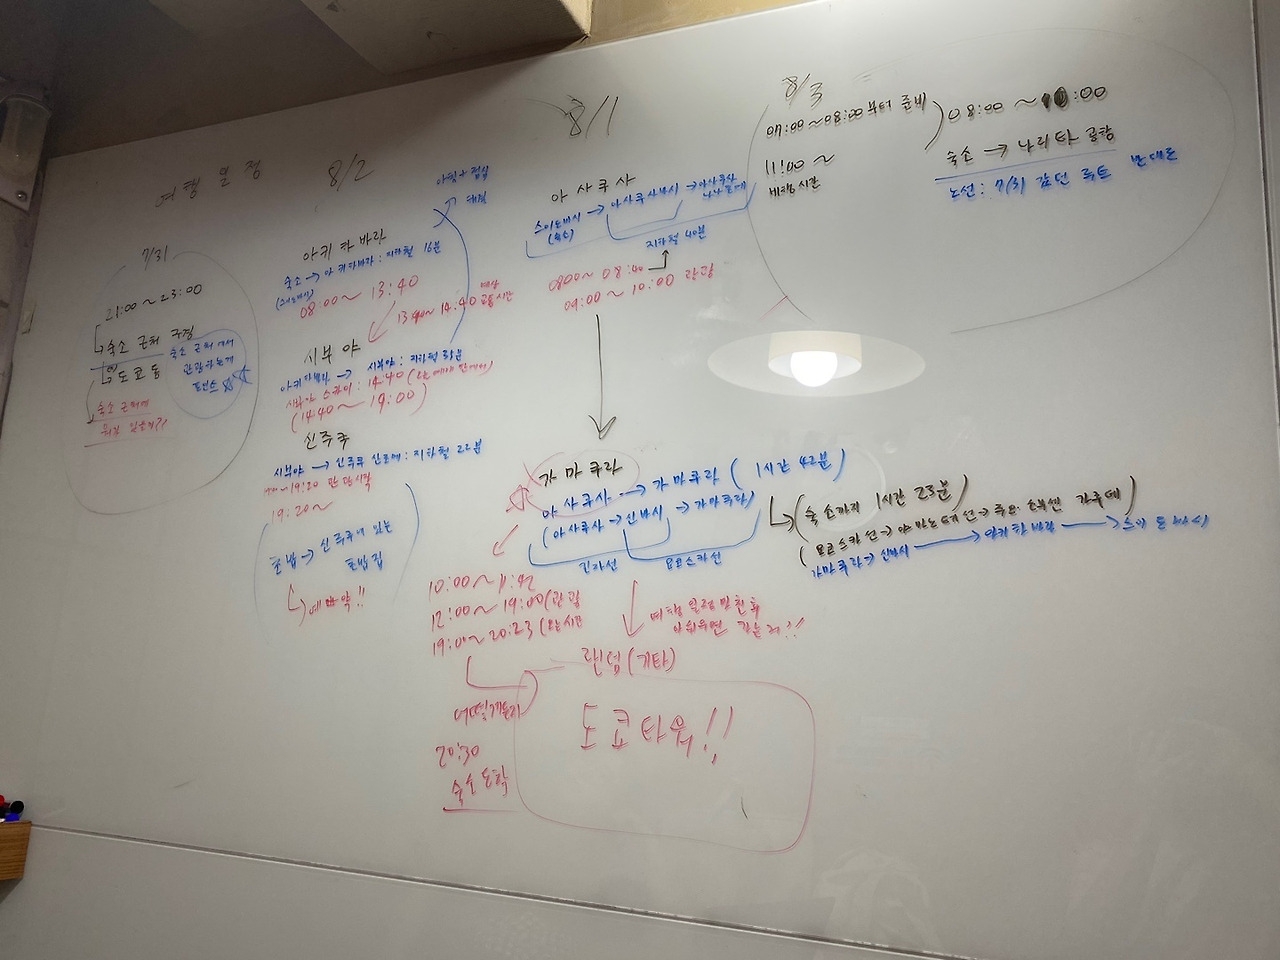 여행 일정
7/31
21:00 ~ 23:00
숙소 근처 구경
도쿄 등
숙소 근처에서
관광하는게
포인스
숙소 근처에
8/2
아침 + 점심
해결
아키하바라
숙소 → 아키하바라 : 지하철 16분
(스이도바시)
08:00 ~ 13:40
13:40 ~ 14:40 예상 교통시간
시부야
아키하바라 → 시부야 : 지하철 31분
시부야 스카이 : 14:40
(14:40 ~ 19:00)
신주쿠
시부야 → 신주쿠 산초메 : 지하철 22분
~ 19:20
19:20 ~
초밥 → 신주쿠에 있는
초밥집
예약!!
8/1
아사쿠사
스이도바시 → 아사쿠사바시 → 아사쿠사
(숙소)
지하철 40분
0800 ~ 08:40
09:00 ~ 10:00 관광
가마쿠라
아사쿠사 → 가마쿠라 (1시간 42분)
(아사쿠사 → 신바시 → 가마쿠라)
긴자선
요코스카선
10:00 ~ 11:42
12:00 ~ 19:00 (관광
19:00 ~ 20:23 (오는시간
어떻게든지
20:30
숙소도착
숙소까지 1시간 23분)
(요코스카선 → 야마노테선 → 주오·소부센 각루데)
가마쿠라 → 신바시 → 아키하바라 → 스이도바시
여행 일정 마친 후
아쉬우면 갈 곳!!
랜덤(기타)
도쿄타워!!
8/3
07:00 ~ 08:00부터 준비
11:00 ~
비행시간
08:00 ~ 10:00
숙소 → 나리타 공항
노선 : 7/31 갔던 루트 반대로